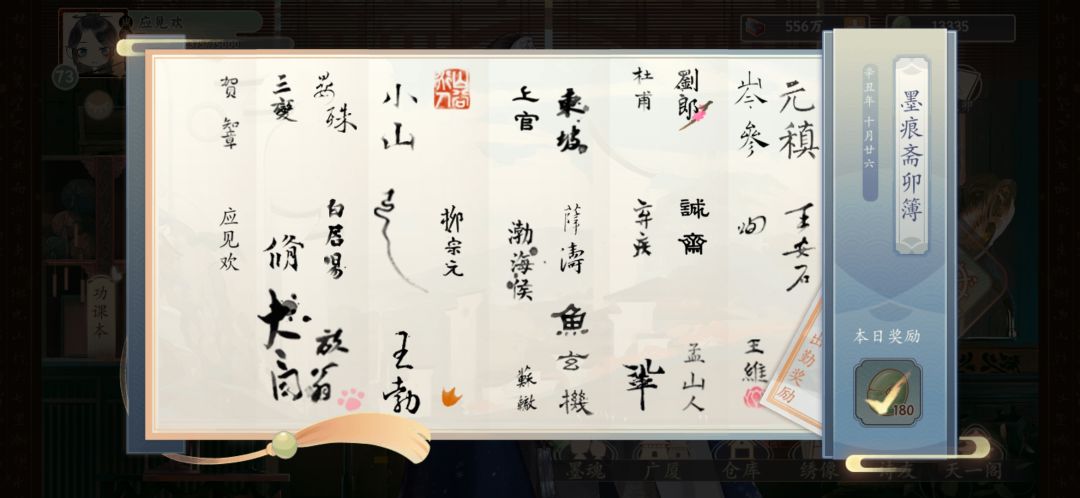 应见欢
73
556万
13335
墨痕斋卯簿
辛丑年 十月廿六
本日奖励
180
出勤奖励
元稹
王安石
岑參
洵
王維
劉郎
誠齋
孟山人
杜甫
弃疾
鞏
東坡
薛濤
魚玄機
上官
渤海侯
蘇轍
山谷
柳宗元
小山
王勃
晏殊
白居易
放翁
三變
脩
賀知章
应见欢
功课本
墨魂
广厦
仓库
绣像
诗友
天一阁